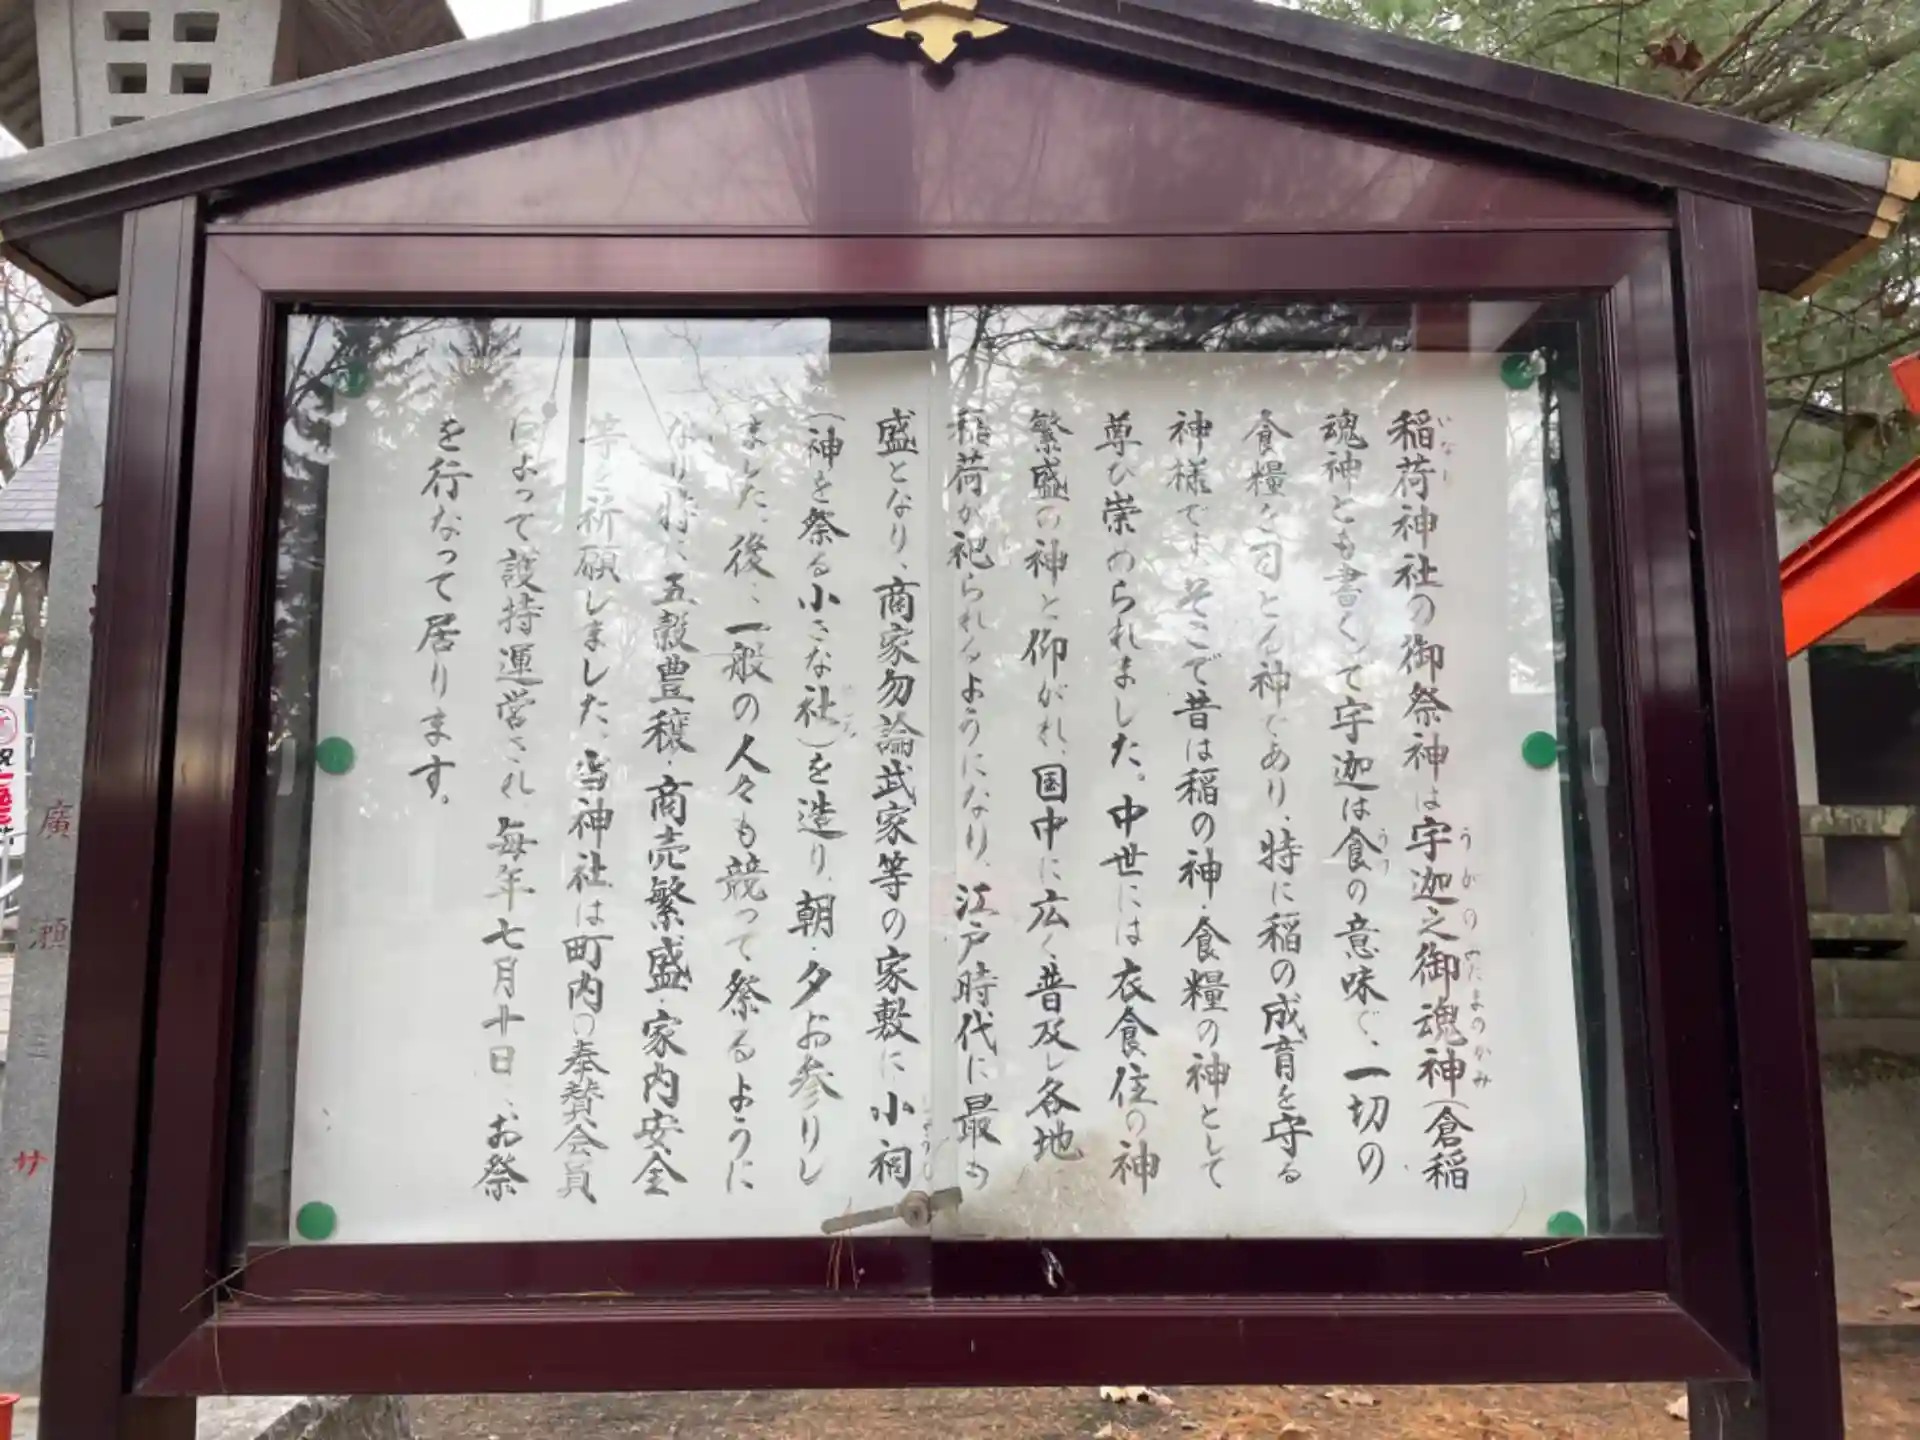 稲荷神社の御祭神は宇迦之御魂神(倉稲
魂神とも書く)て宇迦は食の意味で、一切の
食糧を司とる神であり、特に稲の成育を守る
神様です、そこで昔は稲の神・食糧の神として
尊び崇められました。中世には衣食住の神
繁盛の神と仰がれ、国中に広く普及し各地
稲荷が祀られるようになり、江戸時代に最も
盛となり、商家勿論武家等の家敷に小祠
(神を祭る小さな社)を造り、朝・夕お参りし
ました、後、一般の人々も競って祭るように
なり特に、五穀豊穣・商売繁盛・家内安全
等を祈願しました、当神社は町内の奉賛会員
によって護持運営され、毎年七月十日、お祭
を行なって居ります。
いなり
うがのみたまのかみ
うつ
廣
瀬
サ